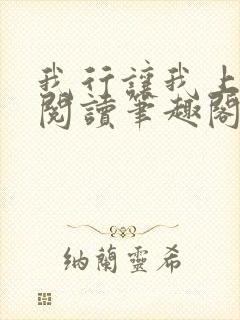 我行讓我上
閱讀筆趣閣
納蘭靈希